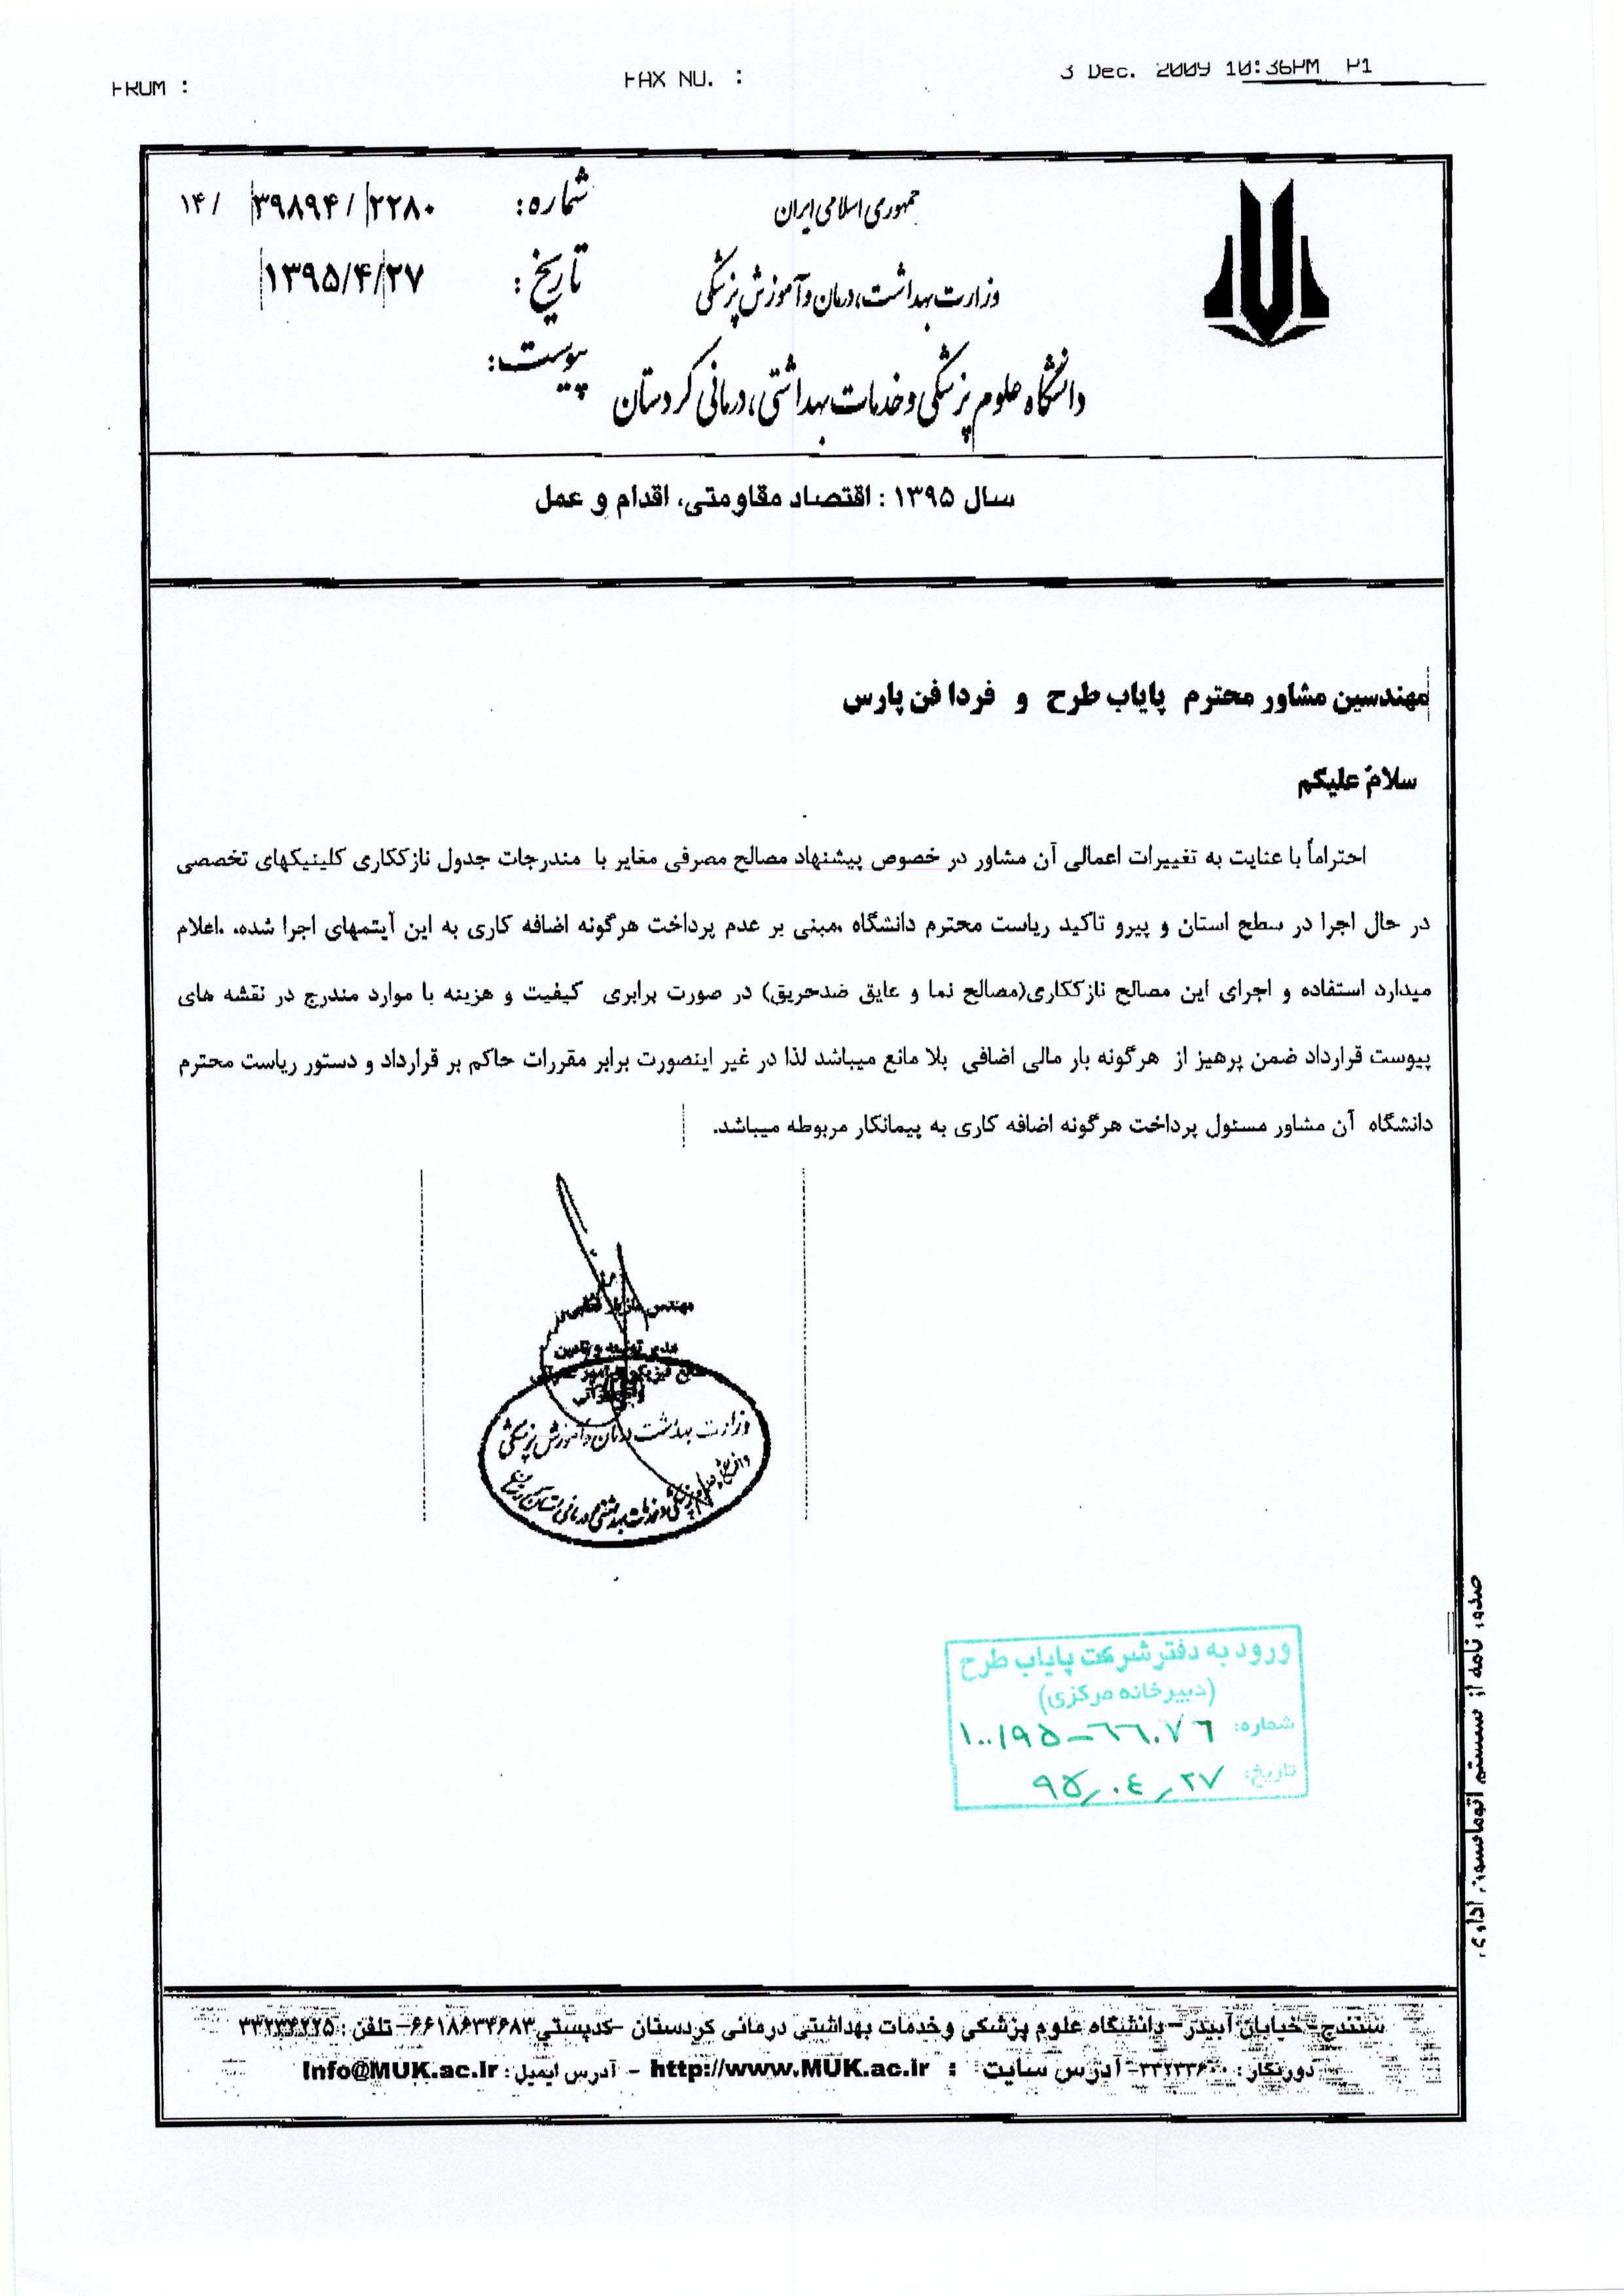 FROM :
FAX NO. :
3 Dec. 2009 10:36PM P1
جمهوری اسلامی ایران
وزارت بهداشت، درمان و آموزش پزشکی
دانشگاه علوم پزشکی و خدمات بهداشتی، درمانی کردستان
شماره: ۱۴/ ۳۹۸۹۴/ ۲۲۸۰
تاریخ: ۱۳۹۵/۴/۲۷
پیوست:
سال ۱۳۹۵ : اقتصاد مقاومتی، اقدام و عمل
مهندسین مشاور محترم پایاب طرح و فردا فن پارس
سلام علیکم
احتراماً با عنایت به تغییرات اعمالی آن مشاور در خصوص پیشنهاد مصالح مصرفی مغایر با مندرجات جدول نازککاری کلینیکهای تخصصی
در حال اجرا در سطح استان و پیرو تاکید ریاست محترم دانشگاه ،مبنی بر عدم پرداخت هرگونه اضافه کاری به این آیتمهای اجرا شده، .اعلام
میدارد استفاده و اجرای این مصالح نازککاری(مصالح نما و عایق ضدحریق) در صورت برابری کیفیت و هزینه با موارد مندرج در نقشه های
پیوست قرارداد ضمن پرهیز از هرگونه بار مالی اضافی بلا مانع میباشد لذا در غیر اینصورت برابر مقررات حاکم بر قرارداد و دستور ریاست محترم
دانشگاه آن مشاور مسئول پرداخت هرگونه اضافه کاری به پیمانکار مربوطه میباشد.
مهندس
مدیر توسعه و تامین
وزارت بهداشت درمان و آموزش پزشکی
دانشگاه علوم پزشکی و خدمات بهداشتی درمانی استان کردستان
ورود به دفتر شرکت پایاب طرح
(دبیرخانه مرکزی)
شماره: ۱۰۰/۹۵-۶۶۰۷۶
تاریخ: ۹۵/۰۴/۲۷
صدور نامه از سیستم اتوماسیون اداری
سنندج- خیابان آبیدر- دانشگاه علوم پزشکی وخدمات بهداشتی درمانی کردستان -کدپستی۶۶۱۸۶۳۴۶۸۳- تلفن :
دورنگار : - آدرس سایت : http://www.MUK.ac.ir - آدرس ایمیل : Info@MUK.ac.ir